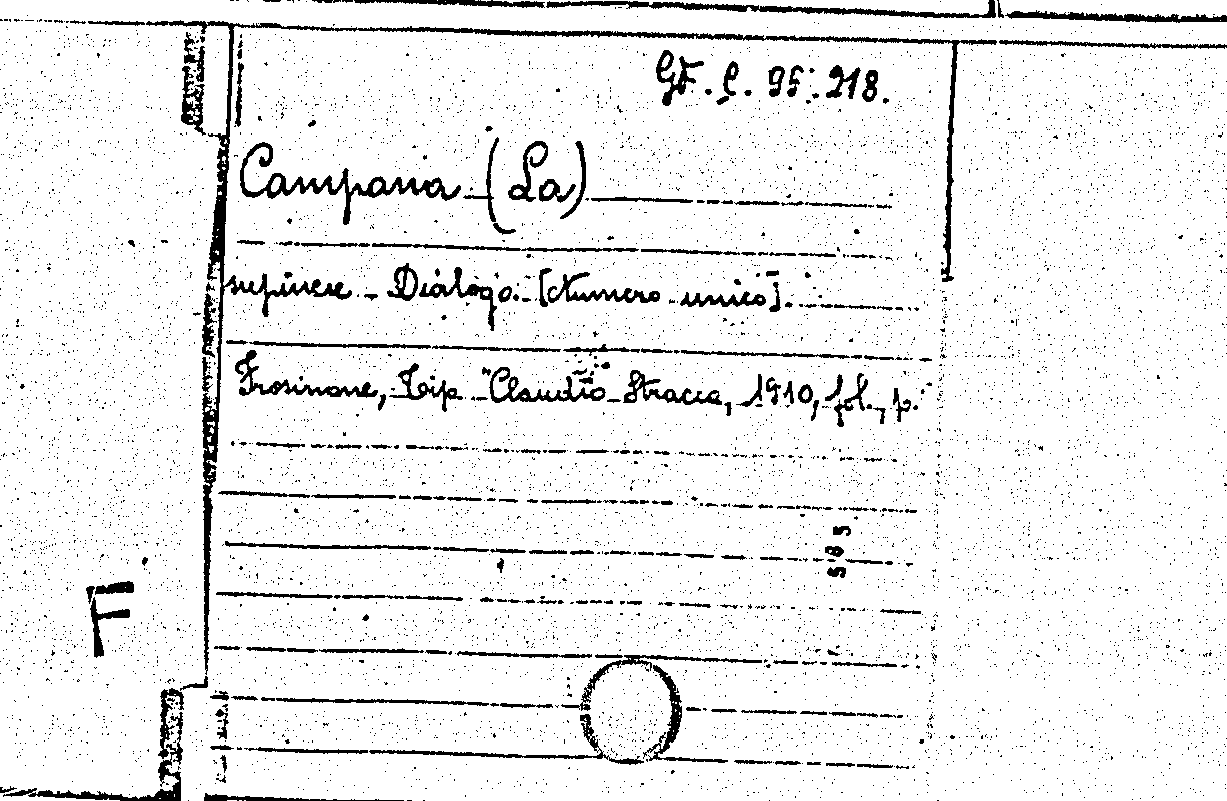 GF. C. 95. 218.
Campana (La)
supinese - Dialogo. [Numero unico].
Frosinone, Tip "Claudio Stracca, 1910, fol., p.
583
F